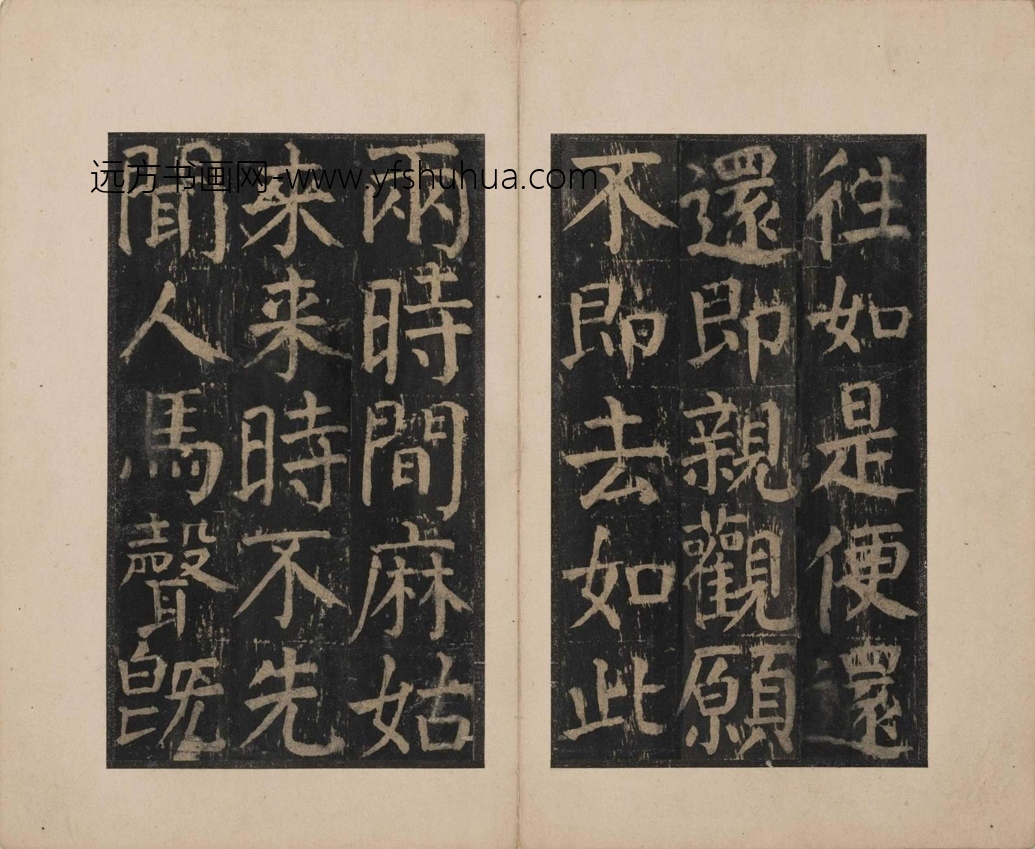 往如是便還
還即親觀願
不即去如此
兩時間麻姑
来来時不先
聞人馬聲既
远方书画网-www.yfshuhua.com